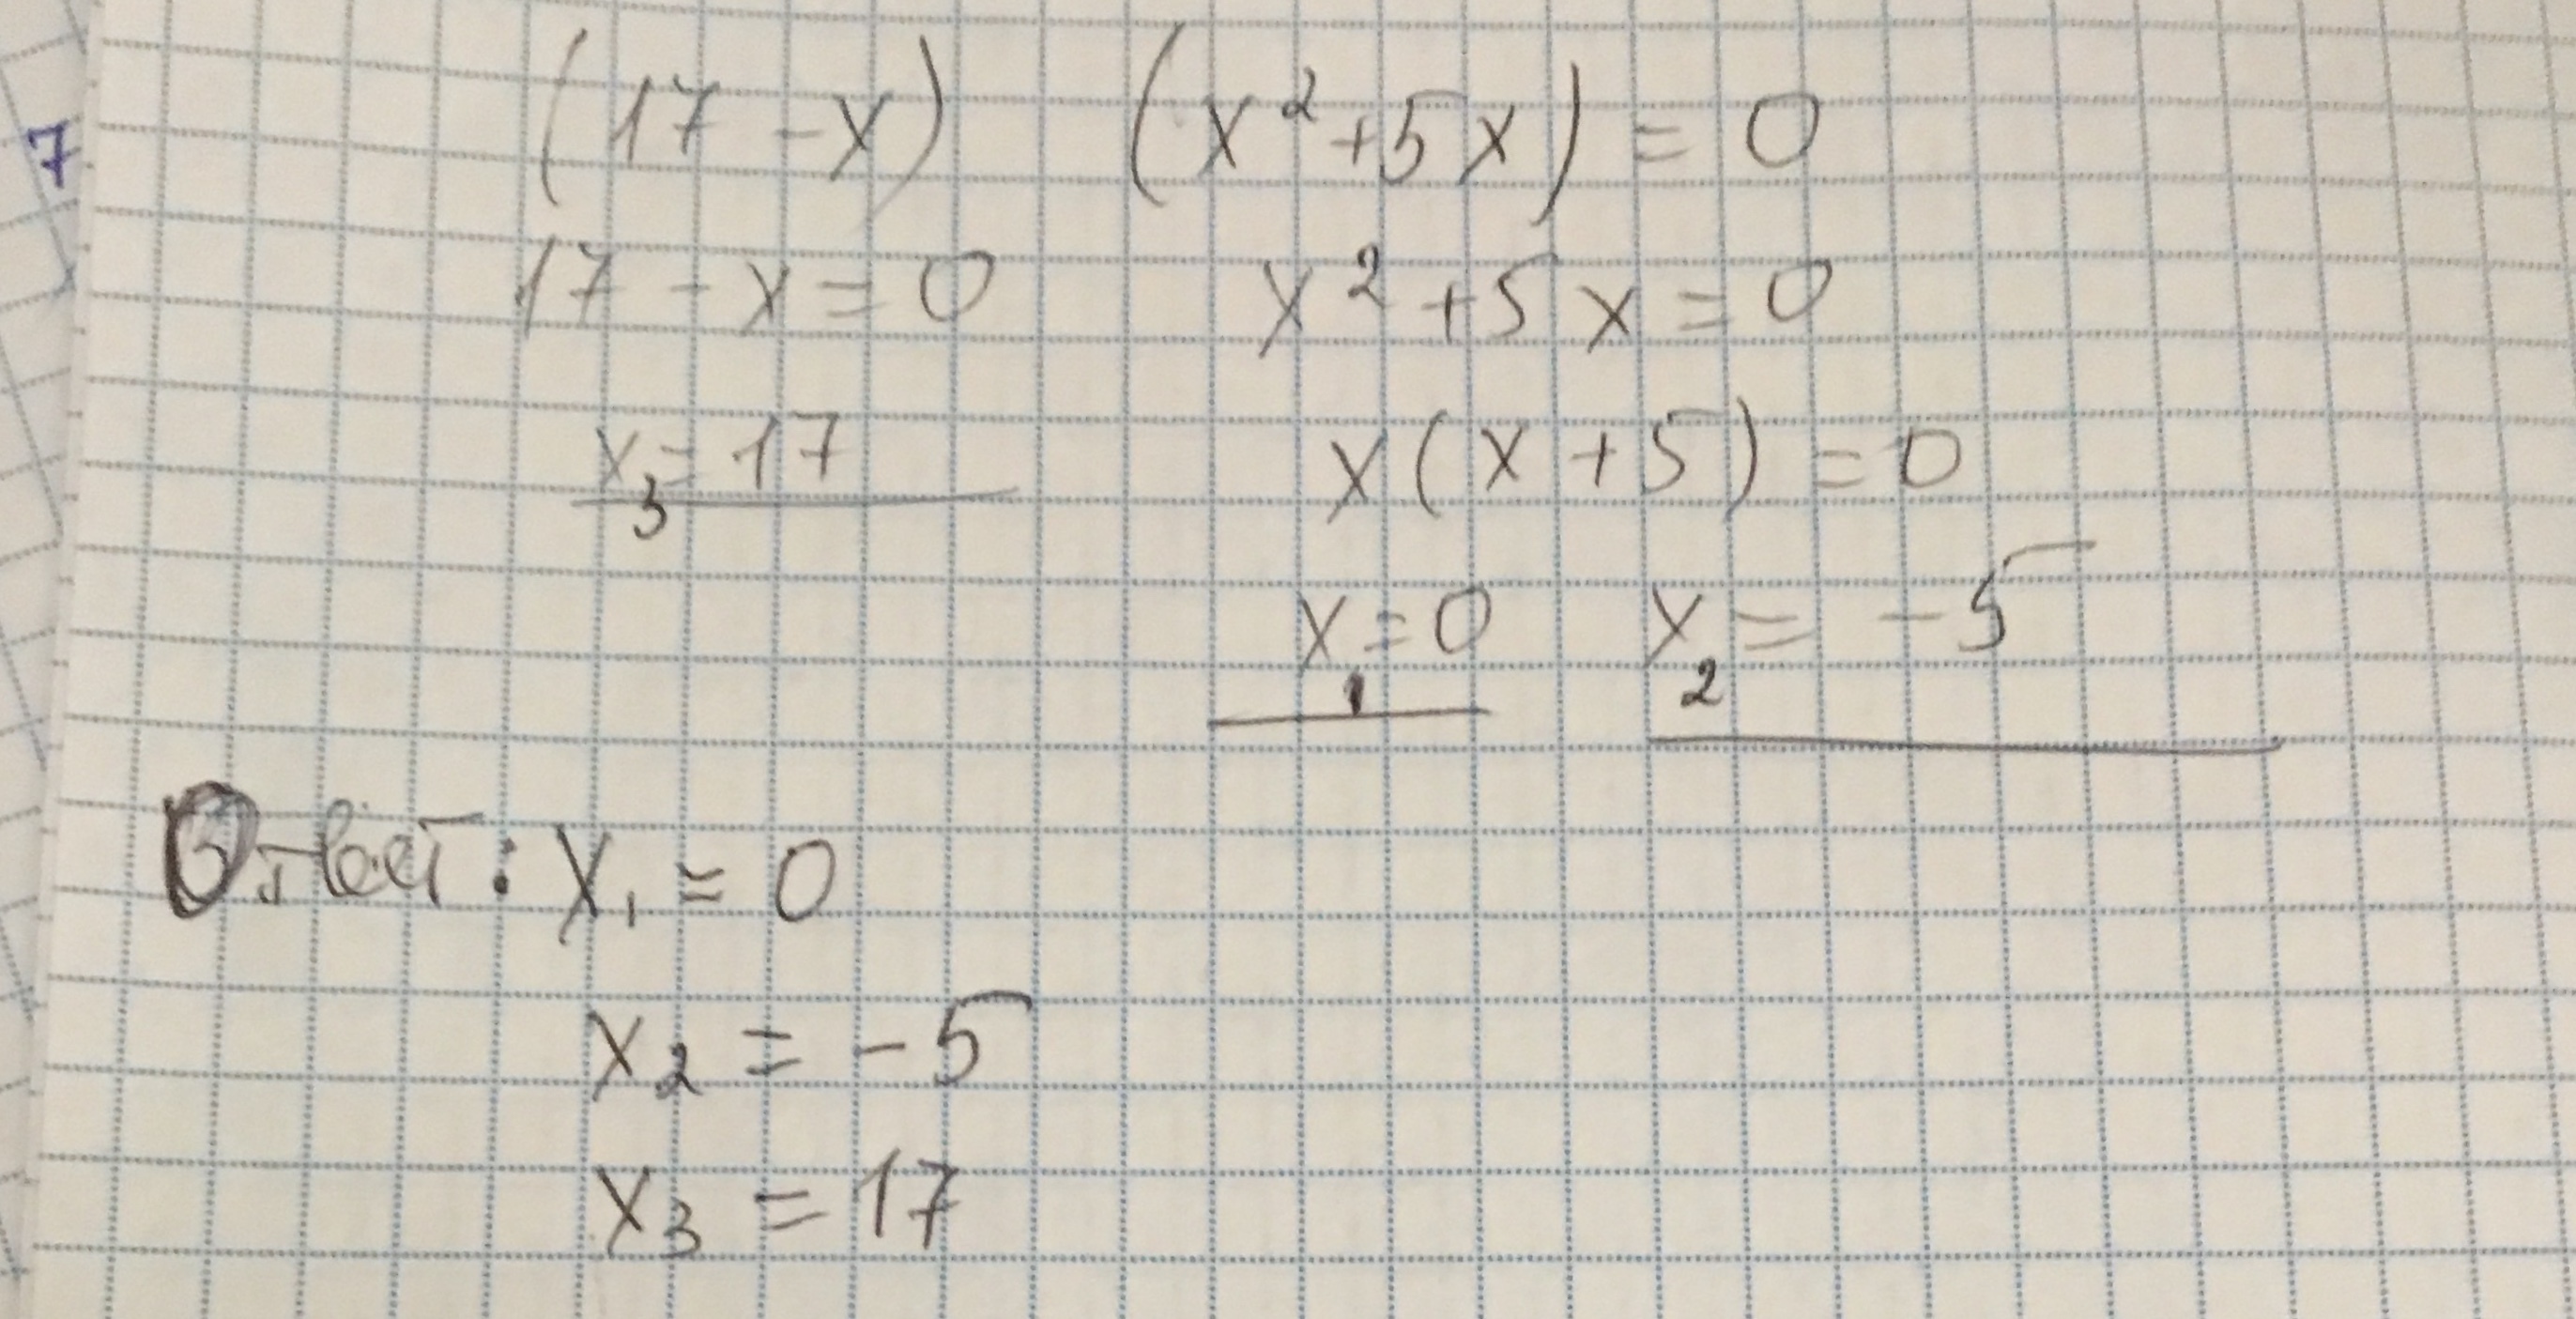 7
(17 - x) (x²+5x) = 0
17 - x = 0 x² + 5x = 0
x₃ = 17 x(x + 5) = 0
x₁ = 0 x₂ = -5
Ответ: x₁ = 0
x₂ = -5
x₃ = 17